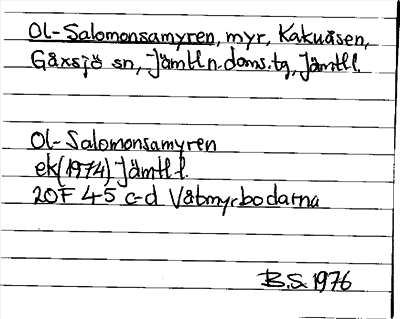 Ol-Salomonsamyren, myr, Kakuåsen,
Gåxsjö sn, Jämtl.n.doms.tg, Jämtl l.
Ol-Salomonsamyren
ek (1974) Jämtl l.
20F 4-5 c-d Våtmyrbodarna
B.S. 1976